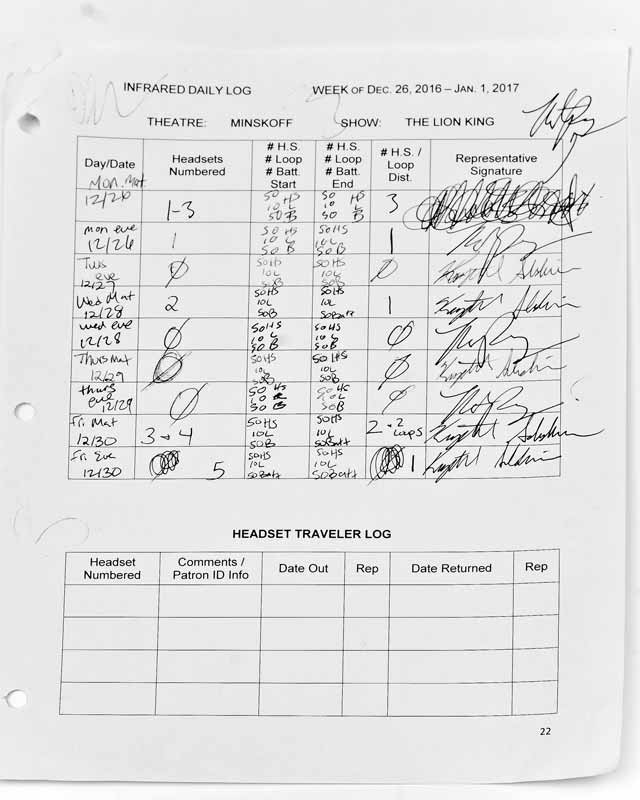 INFRARED DAILY LOG WEEK OF DEC. 26, 2016 – JAN. 1, 2017
THEATRE: MINSKOFF SHOW: THE LION KING
Day/Date
Headsets Numbered
# H.S. # Loop # Batt. Start
# H.S. # Loop # Batt. End
# H.S. / Loop Dist.
Representative Signature
Mon. Mat 12/26
1-3
50 HS 10 L 50 B
50 HS 10 L 50 B
3
mon eve 12/26
1
50 HS 10 L 50 B
50 HS 10 L 50 B
1
Tues eve 12/27
Ø
50HS 10L 50B
50HS 10L 50B
Ø
Wed Mat 12/28
2
50HS 10L 50B
50HS 10L 50Batt
1
wed eve 12/28
Ø
50HS 10L 50B
50HS 10L 50B
Ø
Thurs Mat 12/29
Ø
50HS 10L 50B
50HS 10L 50B
Ø
thurs eve 12/29
Ø
50 HS 10 L 50 B
50 HS 10L 50B
Ø
Fri. Mat 12/30
3 → 4
50HS 10L 50B
50HS 10L 50Batt
2 + 2 Loops
Fri. Eve 12/30
5
50HS 10L 50Batt
50HS 10L 50Batt
1
HEADSET TRAVELER LOG
Headset Numbered
Comments / Patron ID Info
Date Out
Rep
Date Returned
Rep
22